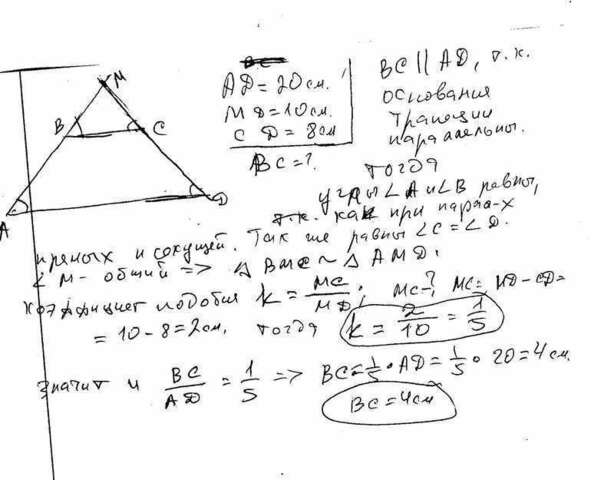 M
B
C
A
D
AD=20см.
MD=10см.
CD=8см
BC=?
BC||AD, т.к.
основания
трапеции
параллельны.
тогда
углы ∠A и ∠B равны,
т.к. как при парал-х
прямых и секущей. Так же равны ∠C=∠D.
∠M- общий => △BMC ~ △AMD.
коэффициент подобия k = MC/MD; MC-? MC = MD-CD=
= 10-8=2см, тогда k = 2/10 = 1/5
значит и BC/AD = 1/5 => BC=1/5·AD=1/5·20=4см.
BC=4см